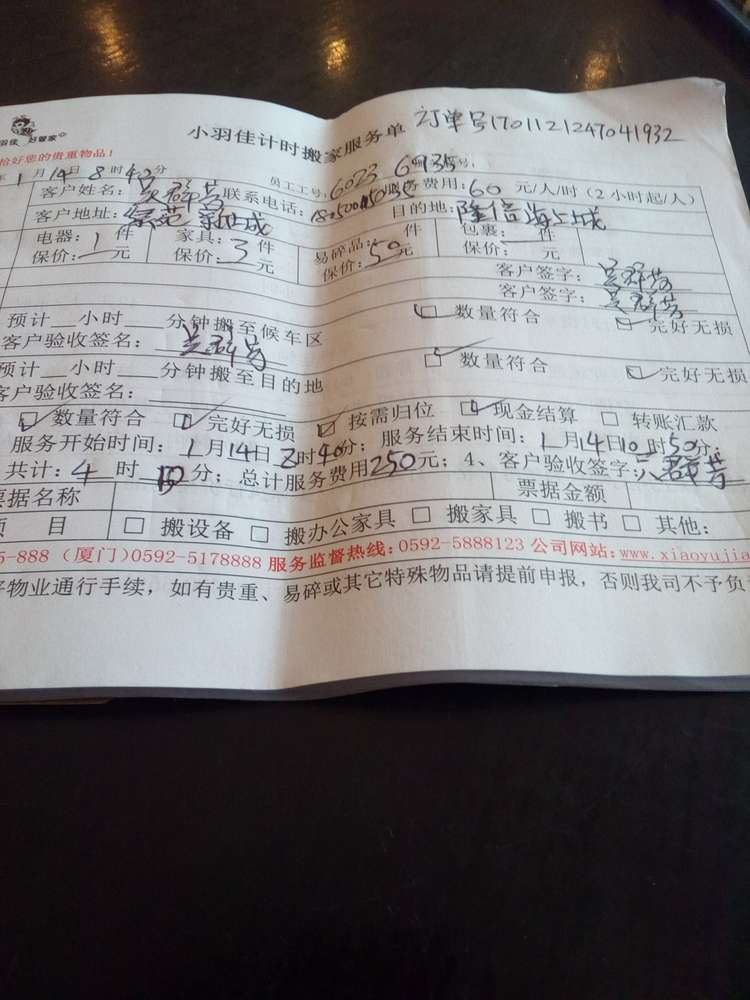 好管家
小羽佳计时搬家服务单 订单号1701121247041932
恰好您的贵重物品!
年1月14日8时42分 员工工号:6023 6935号:
客户姓名:吴群芳 联系电话: 服务费用:60 元/人/时(2小时起/人)
客户地址: 新城 目的地:隆信海上城
电器:1件 家具:3件 易碎品: 件 包裹: 件
保价: 元 保价: 元 保价:50元 保价: 元
客户签字:吴群芳
客户签字:吴群芳
预计 小时 分钟搬至候车区 ☑ 数量符合 ☑ 完好无损
客户验收签名:吴群芳
预计 小时 分钟搬至目的地 ☑ 数量符合 ☑ 完好无损
客户验收签名:
☑ 数量符合 ☑ 完好无损 ☑ 按需归位 ☑ 现金结算 □ 转账汇款
服务开始时间:1月14日8时40分;服务结束时间:1月14日10时50分;
共计:4时10分;总计服务费用250元;4、客户验收签字:吴群芳
票据名称 票据金额
项 目 □ 搬设备 □ 搬办公家具 □ 搬家具 □ 搬书 □ 其他:
5-888(厦门)0592-5178888 服务监督热线:0592-5888123 公司网站:www.xiaoyujia
物业通行手续,如有贵重、易碎或其它特殊物品请提前申报,否则我司不予负